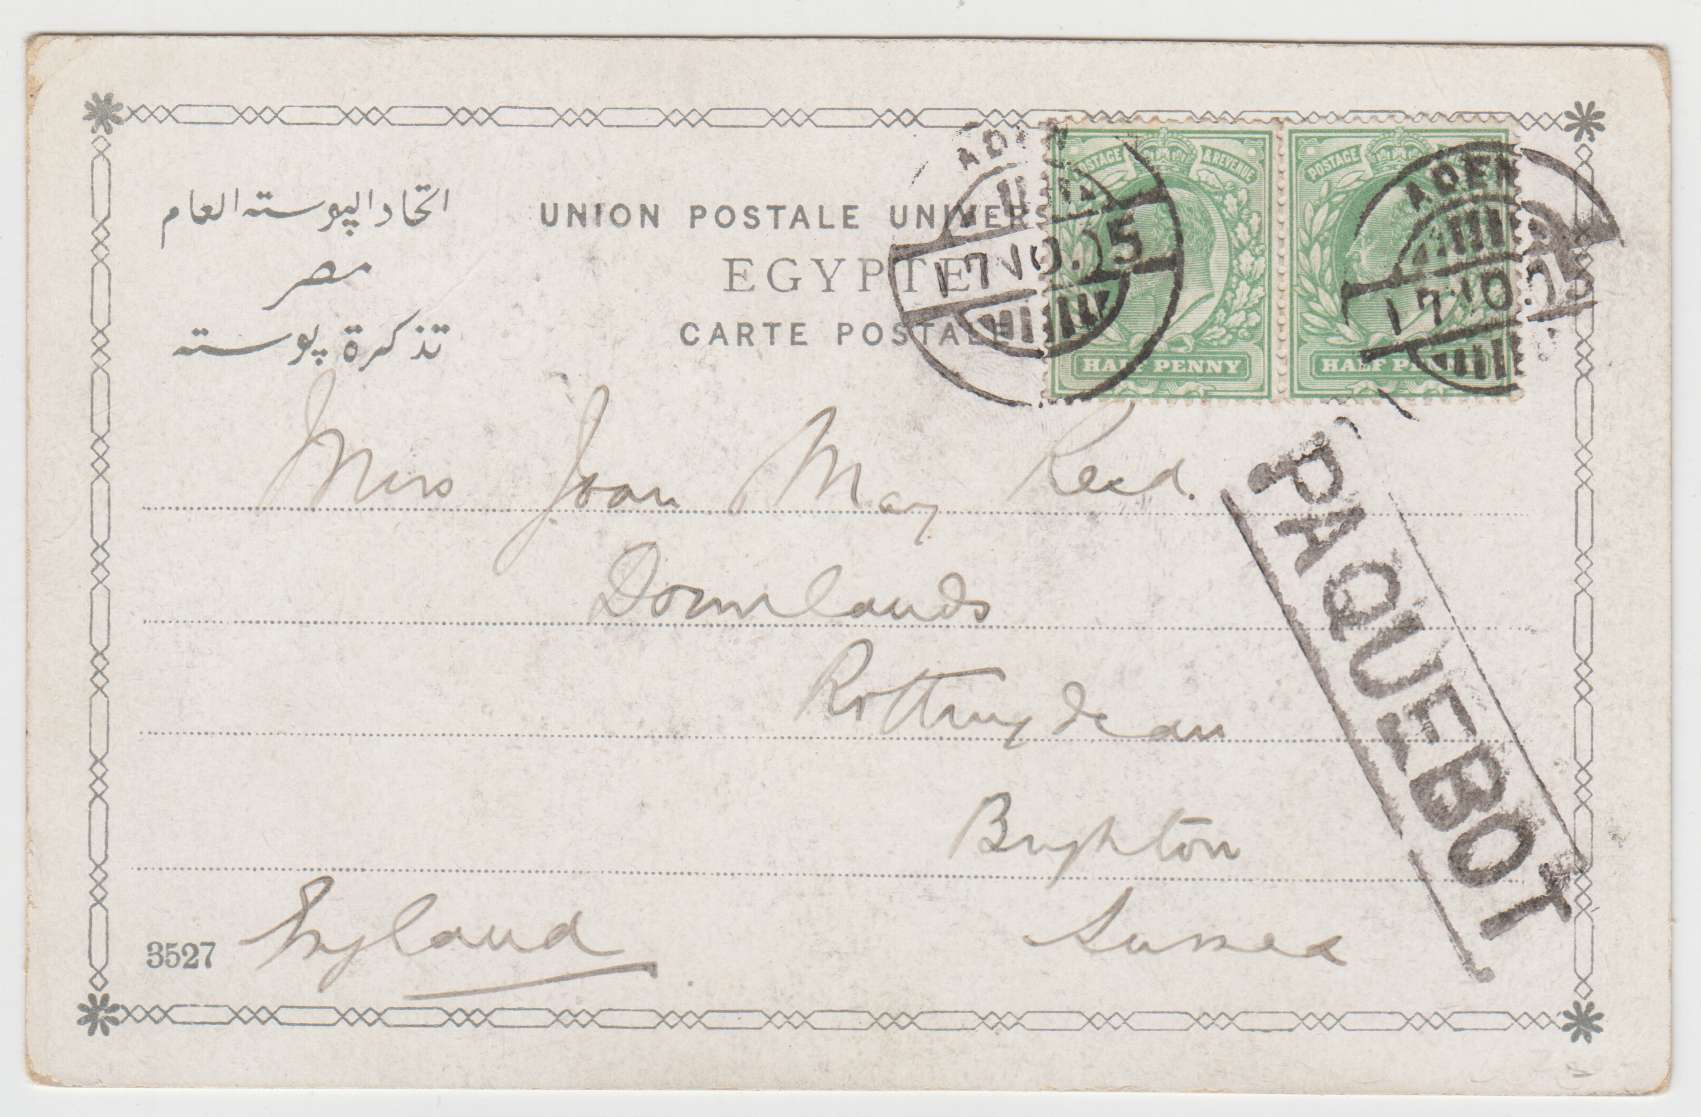 اتحاد البوسته العام
مصر
تذكرة بوسته
UNION POSTALE UNIVERS
EGYPTE
CARTE POSTALE
ADEN
17 NO.05
POSTAGE & REVENUE
HALF PENNY
POSTAGE
ADEN
17 NO.05
HALF PENNY
PAQUEBOT
Miss Joan May Reed.
Downlands
Rottingdean
Brighton
Sussex
England
3527